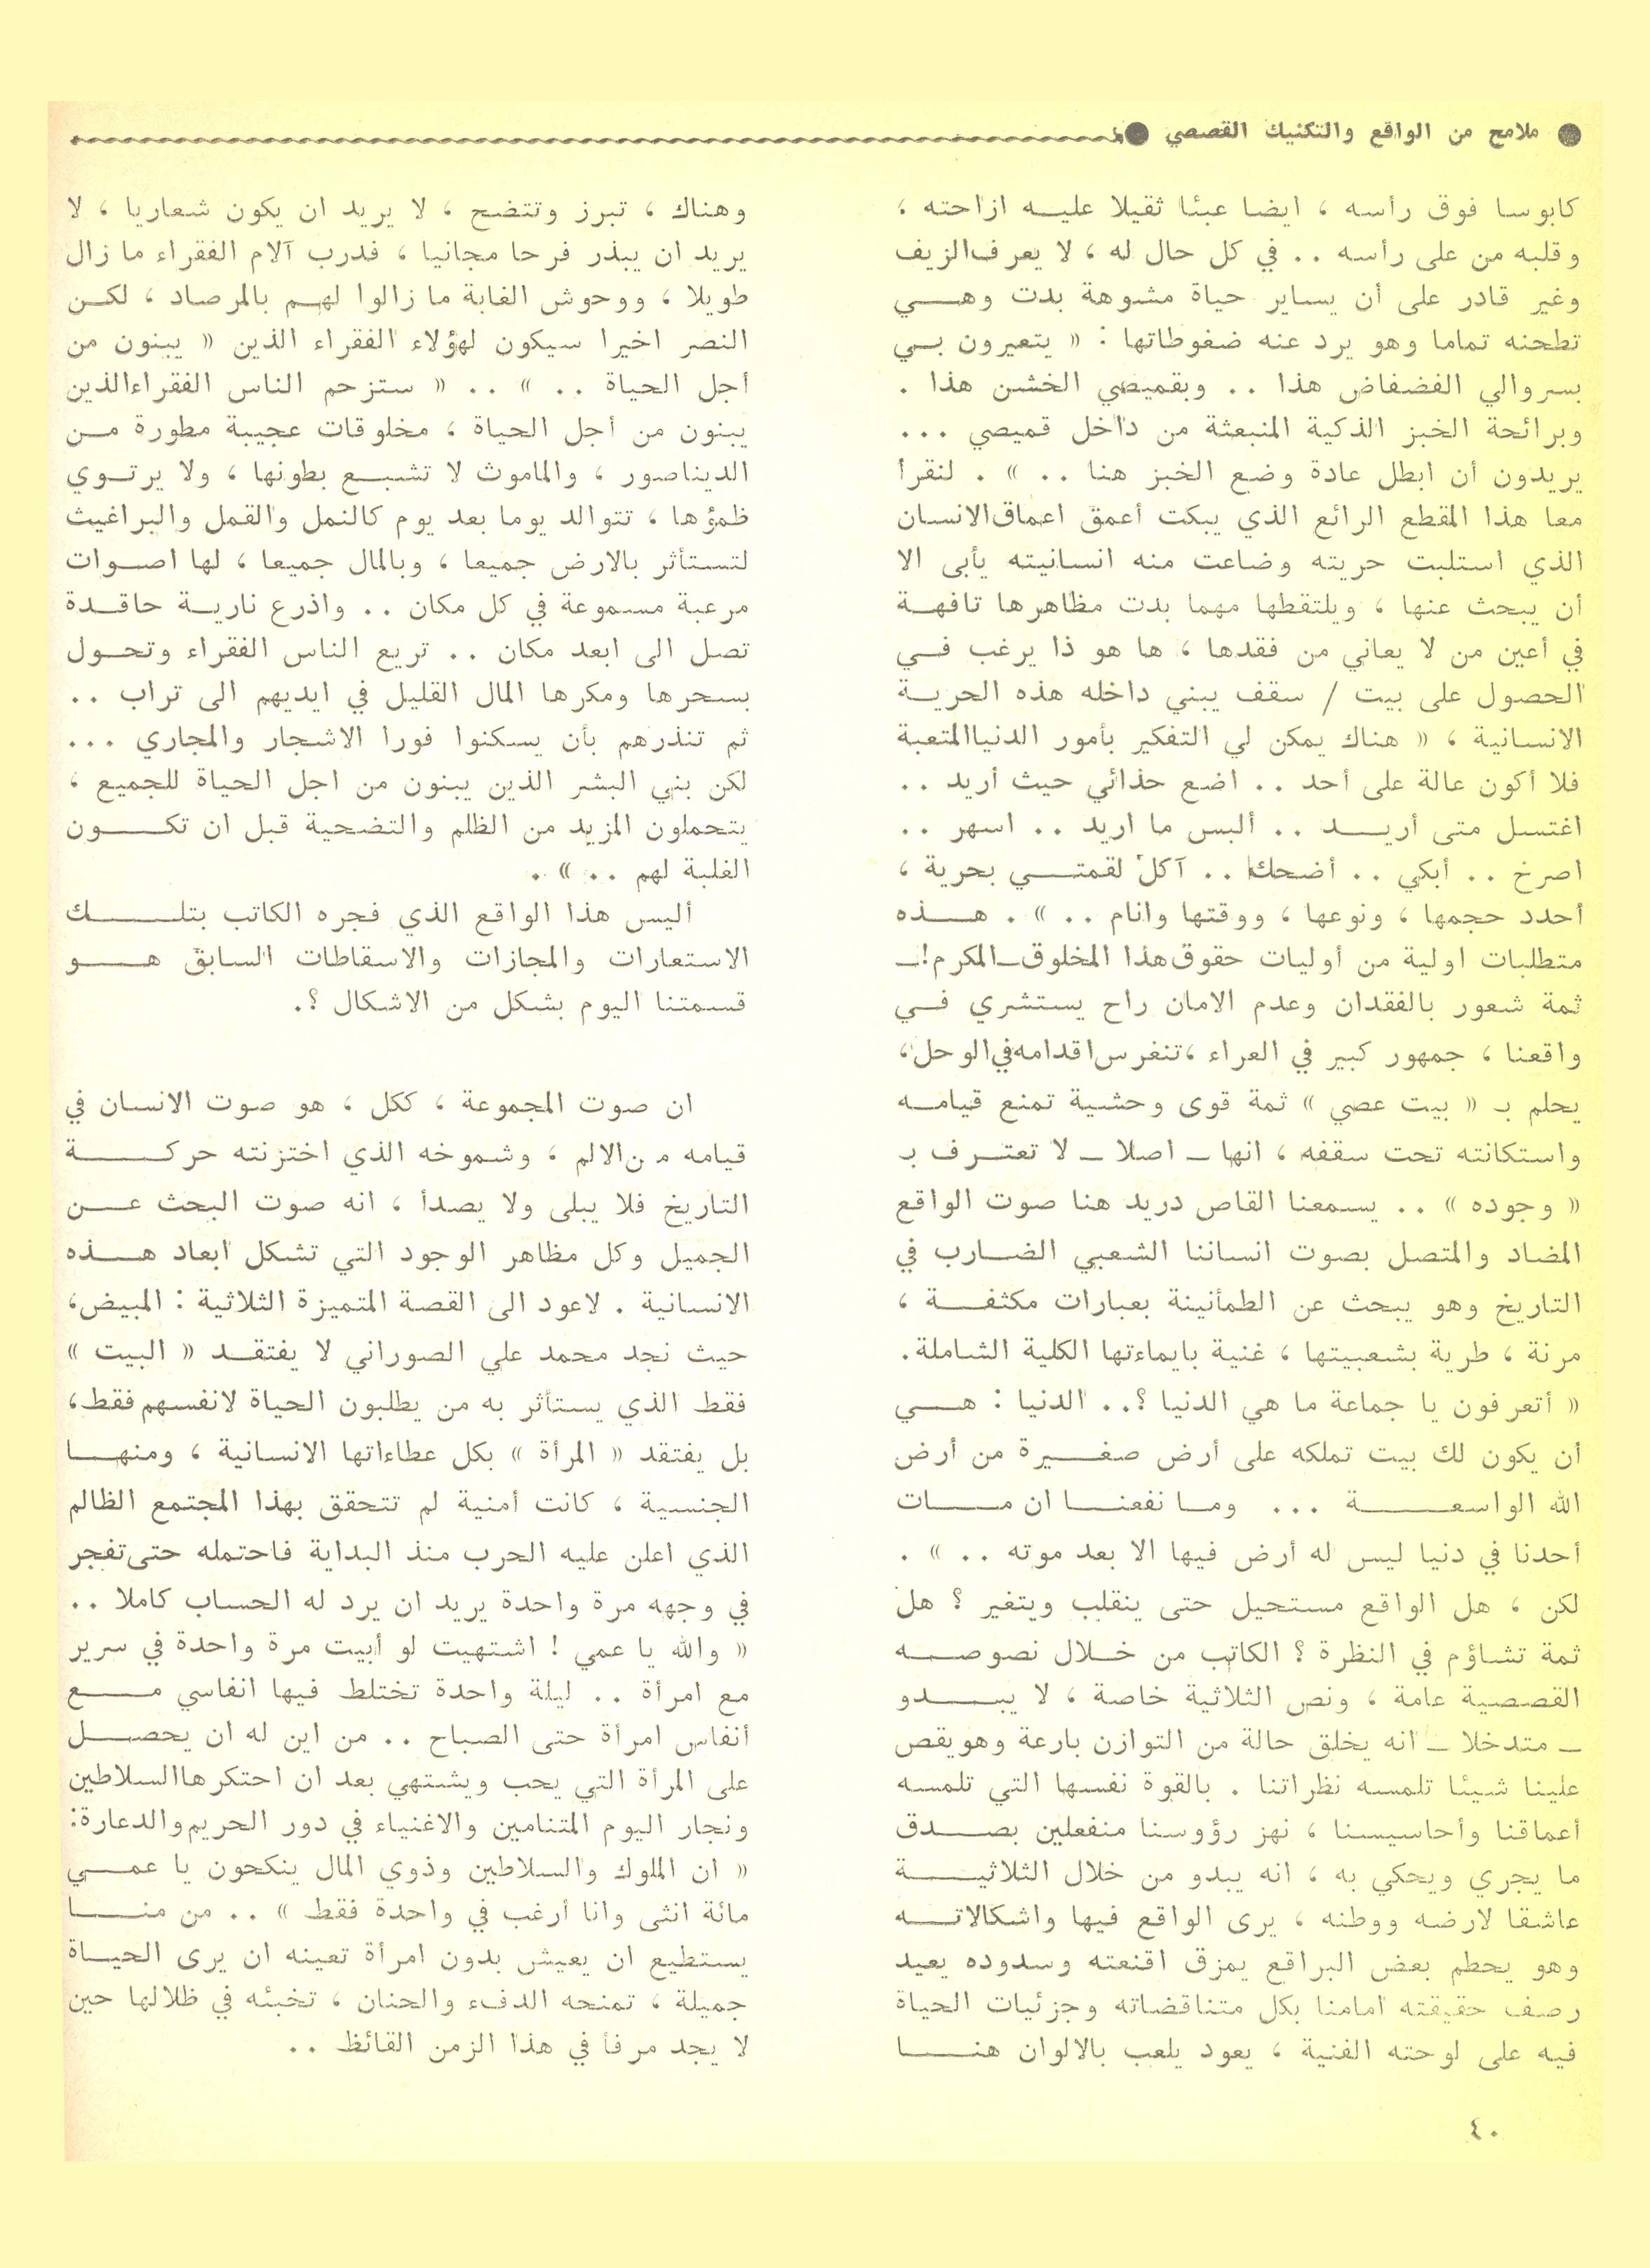 ● ملامح من الواقع والتكنيك القصصي ●
كابوسا فوق رأسه ، ايضا عبئا ثقيلا عليه ازاحته ،
وقلبه من على رأسه .. في كل حال له ، لا يعرف الزيف
وغير قادر على أن يساير حياة مشوهة بدت وهي
تطحنه تماما وهو يرد عنه ضغوطاتها : « يتعيرون بي
بسروالي الفضفاض هذا .. وبقميصي الخشن هذا .
وبرائحة الخبز الذكية المنبعثة من داخل قميصي ...
يريدون أن ابطل عادة وضع الخبز هنا .. » . لنقرأ
معا هذا المقطع الرائع الذي يبكت أعمق اعماق الانسان
الذي استلبت حريته وضاعت منه انسانيته يأبى الا
أن يبحث عنها ، ويلتقطها مهما بدت مظاهرها تافهة
في أعين من لا يعاني من فقدها ، ها هو ذا يرغب في
الحصول على بيت / سقف يبني داخله هذه الحرية
الانسانية ، « هناك يمكن لي التفكير بأمور الدنيا المتعبة
فلا أكون عالة على أحد .. اضع حذائي حيث أريد ..
اغتسل متى أريد .. ألبس ما اريد .. اسهر ..
اصرخ .. أبكي .. أضحك .. آكل لقمتي بحرية ،
أحدد حجمها ، ونوعها ، ووقتها وانام .. » . هذه
متطلبات اولية من أوليات حقوق هذا المخلوق ـ المكرم ! ـ
ثمة شعور بالفقدان وعدم الامان راح يستشري في
واقعنا ، جمهور كبير في العراء ، تنغرس اقدامه في الوحل ،
يحلم بـ « بيت عصي » ثمة قوى وحشية تمنع قيامه
واستكانته تحت سقفه ، انها ـ اصلا ـ لا تعترف بـ
« وجوده » .. يسمعنا القاص دريد هنا صوت الواقع
المضاد والمتصل بصوت انساننا الشعبي الضارب في
التاريخ وهو يبحث عن الطمأنينة بعبارات مكثفة ،
مرنة ، طرية بشعبيتها ، غنية بايماءتها الكلية الشاملة .
« أتعرفون يا جماعة ما هي الدنيا ؟ .. الدنيا : هي
أن يكون لك بيت تملكه على أرض صغيرة من أرض
الله الواسعة ... وما نفعنا ان مات
أحدنا في دنيا ليس له أرض فيها الا بعد موته .. » .
لكن ، هل الواقع مستحيل حتى ينقلب ويتغير ؟ هل
ثمة تشاؤم في النظرة ؟ الكاتب من خلال نصوصه
القصصية عامة ، ونص الثلاثية خاصة ، لا يبدو
ـ متدخلا ـ انه يخلق حالة من التوازن بارعة وهو يقص
علينا شيئا تلمسه نظراتنا . بالقوة نفسها التي تلمسه
أعماقنا وأحاسيسنا ، نهز رؤوسنا منفعلين بصدق
ما يجري ويحكي به ، انه يبدو من خلال الثلاثية
عاشقا لارضه ووطنه ، يرى الواقع فيها واشكالاته
وهو يحطم بعض البراقع يمزق اقنعته وسدوده يعيد
رصف حقيقته امامنا بكل متناقضاته وجزئيات الحياة
فيه على لوحته الفنية ، يعود يلعب بالالوان هنا
وهناك ، تبرز وتتضح ، لا يريد ان يكون شعاريا ، لا
يريد ان يبذر فرحا مجانيا ، فدرب آلام الفقراء ما زال
طويلا ، ووحوش الغابة ما زالوا لهم بالمرصاد ، لكن
النصر اخيرا سيكون لهؤلاء الفقراء الذين « يبنون من
أجل الحياة .. » .. « ستزحم الناس الفقراء الذين
يبنون من أجل الحياة ، مخلوقات عجيبة مطورة من
الديناصور ، والماموث لا تشبع بطونها ، ولا يرتوي
ظمؤها ، تتوالد يوما بعد يوم كالنمل والقمل والبراغيث
لتستأثر بالارض جميعا ، وبالمال جميعا ، لها اصوات
مرعبة مسموعة في كل مكان .. واذرع نارية حاقدة
تصل الى ابعد مكان .. تريع الناس الفقراء وتحول
بسحرها ومكرها المال القليل في ايديهم الى تراب ..
ثم تنذرهم بأن يسكنوا فورا الاشجار والمجاري ...
لكن بني البشر الذين يبنون من اجل الحياة للجميع ،
يتحملون المزيد من الظلم والتضحية قبل ان تكون
الغلبة لهم .. » .
أليس هذا الواقع الذي فجره الكاتب بتلك
الاستعارات والمجازات والاسقاطات السابق هو
قسمتنا اليوم بشكل من الاشكال ؟.
ان صوت المجموعة ، ككل ، هو صوت الانسان في
قيامه من الالم ، وشموخه الذي اختزنته حركة
التاريخ فلا يبلى ولا يصدأ ، انه صوت البحث عن
الجميل وكل مظاهر الوجود التي تشكل ابعاد هذه
الانسانية . لاعود الى القصة المتميزة الثلاثية : المبيض ،
حيث نجد محمد علي الصوراني لا يفتقد « البيت »
فقط الذي يستأثر به من يطلبون الحياة لانفسهم فقط ،
بل يفتقد « المرأة » بكل عطاءاتها الانسانية ، ومنها
الجنسية ، كانت أمنية لم تتحقق بهذا المجتمع الظالم
الذي اعلن عليه الحرب منذ البداية فاحتمله حتى تفجر
في وجهه مرة واحدة يريد ان يرد له الحساب كاملا ..
« والله يا عمي ! اشتهيت لو أبيت مرة واحدة في سرير
مع امرأة .. ليلة واحدة تختلط فيها انفاسي مع
أنفاس امرأة حتى الصباح .. من اين له ان يحصل
على المرأة التي يحب ويشتهي بعد ان احتكرها السلاطين
ونجار اليوم المتنامين والاغنياء في دور الحريم والدعارة :
« ان الملوك والسلاطين وذوي المال ينكحون يا عمي
مائة انثى وانا أرغب في واحدة فقط » .. من منا
يستطيع ان يعيش بدون امرأة تعينه ان يرى الحياة
جميلة ، تمنحه الدفء والحنان ، تخبئه في ظلالها حين
لا يجد مرفأ في هذا الزمن القائظ ..
٤٠